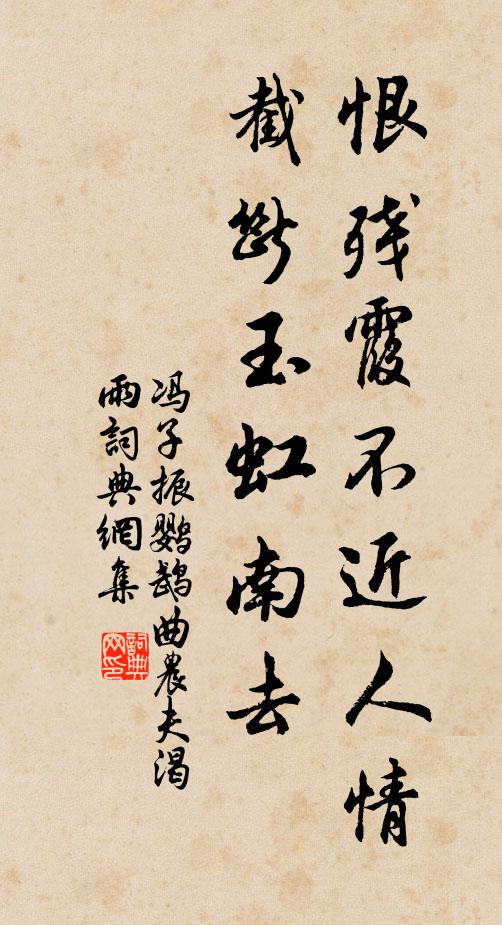 恨残霞不近人情
截断玉虹南去
冯子振鹦鹉曲農夫渴
雨詞典網集
詞典网印